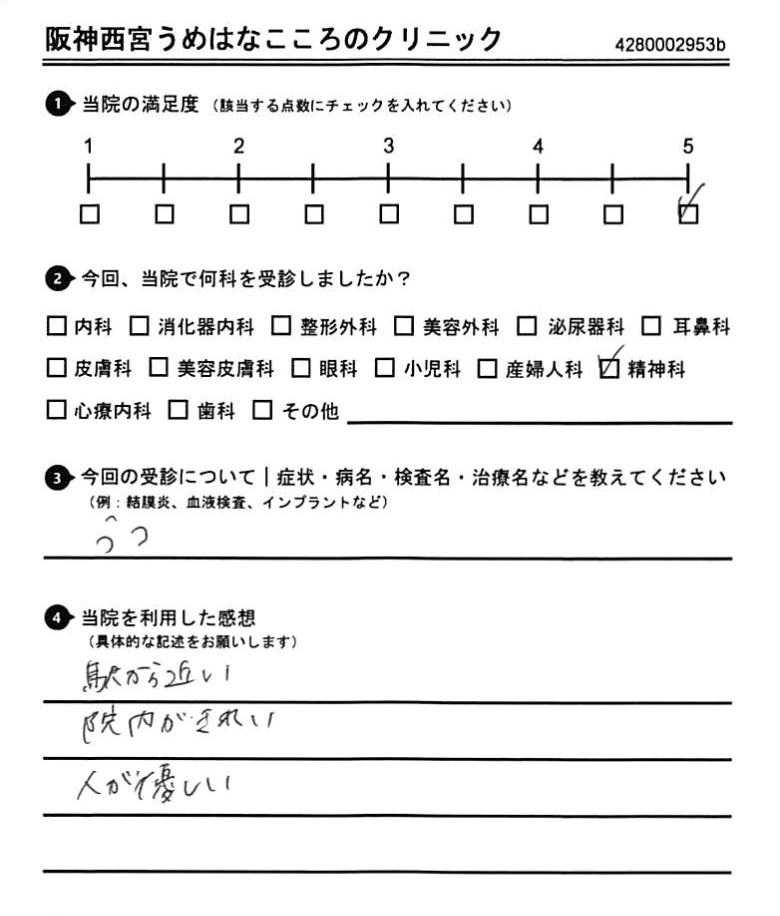 阪神西宮うめはなこころのクリニック 4280002953b
1 当院の満足度 (該当する点数にチェックを入れてください)
1 2 3 4 5
2 今回、当院で何科を受診しましたか？
内科 消化器内科 整形外科 美容外科 泌尿器科 耳鼻科
皮膚科 美容皮膚科 眼科 小児科 産婦人科 精神科
心療内科 歯科 その他
3 今回の受診について｜症状・病名・検査名・治療名などを教えてください
(例：結膜炎、血液検査、インプラントなど)
うつ
4 当院を利用した感想
(具体的な記述をお願いします)
駅から近い
院内がきれい
人が優しい